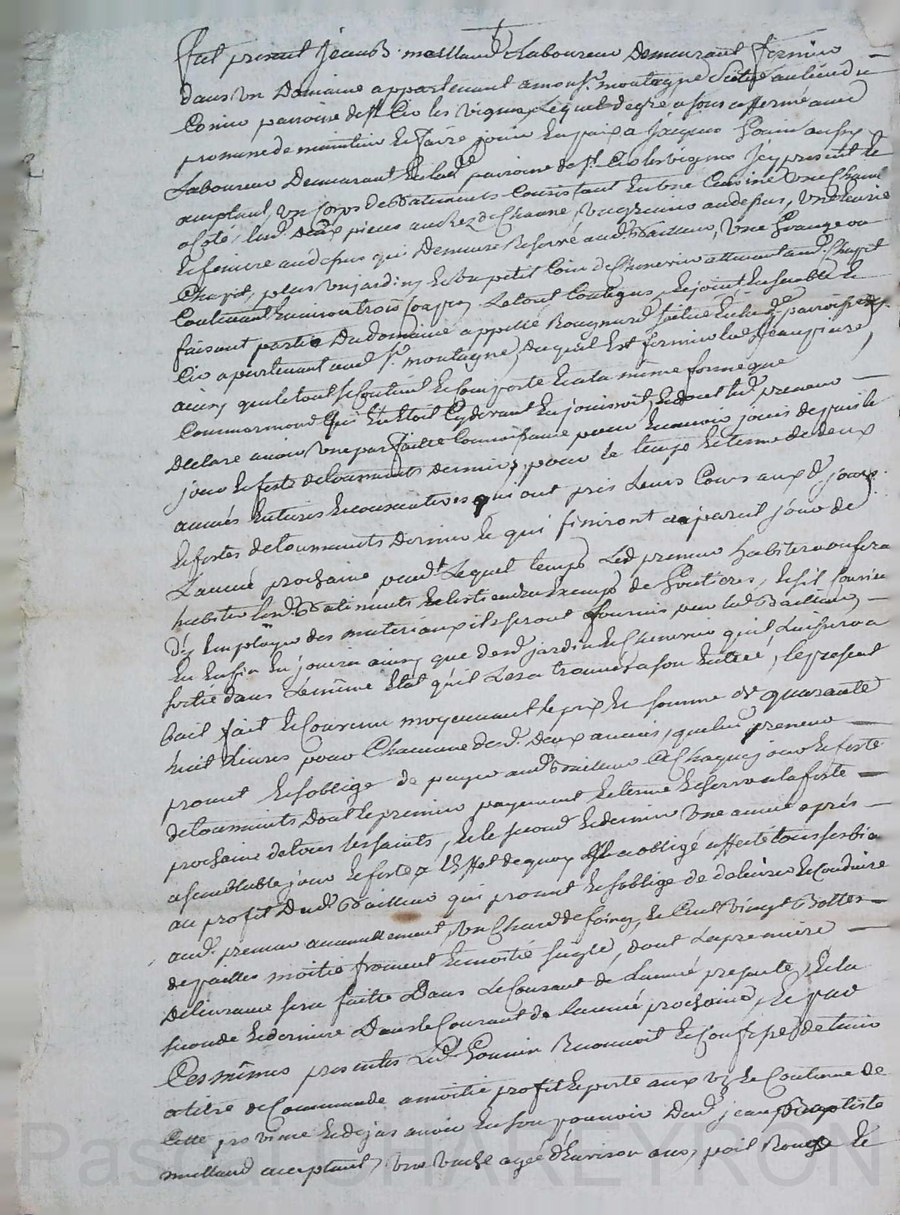 fut présent Jean B. mailland Laboureur Demeurant fermier
dans un Domaine appartenant a mons.r montagne situé au lieu de
paroisse de St Cir les vignes Lequel de gré a sous affermé avec
promesse de maintenir et faire jouir en paix a Jacques Gouin aussy
Laboureur Demeurant en lad. paroisse de St Cir les vignes icy present et
acceptant, un Corps de Batiments Consistant en une Cuisine une Chambre
a Coté, lesd. deux pieces au rez de Chaussé, au dessus, une Ecurie
et feniere au dessus qui Demeure Reservé aud. Bailleur, une Grange ou
Chapit, plus un jardin, et un petit Coin de Cheneviere attenant aud. Chapit
Contenant environ trois Coupées Le tout Contigus, et joint ensemble et
faisant partie Du Domaine appellé situé en lad. paroisse de St
Cir apartenant aud. Sr. montagne, duquel est fermier led. Jean pierre
ainsy que le tout se Contient et Comporte et en la même forme que
Commarmond qui En Etoit Cydevant En jouissoit, et dont led. preneur —
Declare avoir une parfaite Connoissance pour En avoir jouis depuis le
jour et feste de Toussaints dernier, pour le temps et terme de deux
années Entieres et consecutives qui ont pris Leurs Cours aux d. jour
et festes de toussaints Dernier et qui finiront a pareil jour de
L'année prochaine pend.t Lequel temps Led. preneur habitera ou fera
habiter lesd. Batiments de Goutieres, et s'il
Employer des materiaux ils seront fournis par led. Bailleur, —
Et Enfin En jouira ainsy que desd. jardin et Cheneviere qu'il Laissera a
sortie dans Le même Etat qu'il Les a trouvés a son Entrée, le present
bail fait et Convenu moyennant le prix et somme de quarante
huit Livres pour Chacune desd. deux années, que led. preneur —
promet et s'oblige de payer aud. Bailleur a Chaque jour et feste
de toussaints Dont le premier payement et terme Echerra a la feste —
prochaine de tous les saints, et le second et dernier une année après —
a semblable jour et feste a L'Effet de quoy il a obligé affecté tous ses biens
au profit Dud. Bailleur qui promet et s'oblige de délivrer et Conduire
aud. preneur annuellement, un Chard de foing, et Cent vingt Bottes —
de pailles moitié froment et moitié seigle, dont La premiere —
Délivrance sera faitte Dans Le Courant de L'année presente, et la
seconde et derniere Dans le Courant de L'année prochaine, Et par
Ces mêmes presentes Led. Gouin Reconnoit et Confesse de tenir
a titre de Commande a moitié profit et perte aux us et Coutume de
Cette province et dejas avoir En son pouvoir Dud. jean Baptiste
milland acceptant, une vache agée d'Environ ans, poil Rouge et
Pascal CHAREYRON